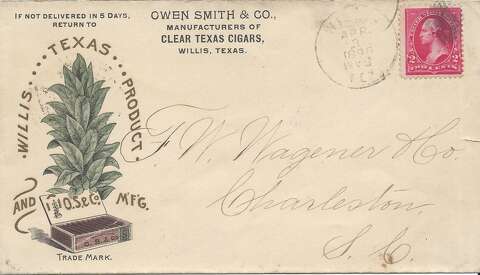 IF NOT DELIVERED IN 5 DAYS,
RETURN TO
OWEN SMITH & CO.,
MANUFACTURERS OF
CLEAR TEXAS CIGARS,
WILLIS, TEXAS.
WILLIS TEXAS PRODUCT
AND O.S.& Co. M'F'G.
TRADE MARK.
APR
2 TWO CENTS 2
F. W. Wagener & Co.
Charleston,
S. C.